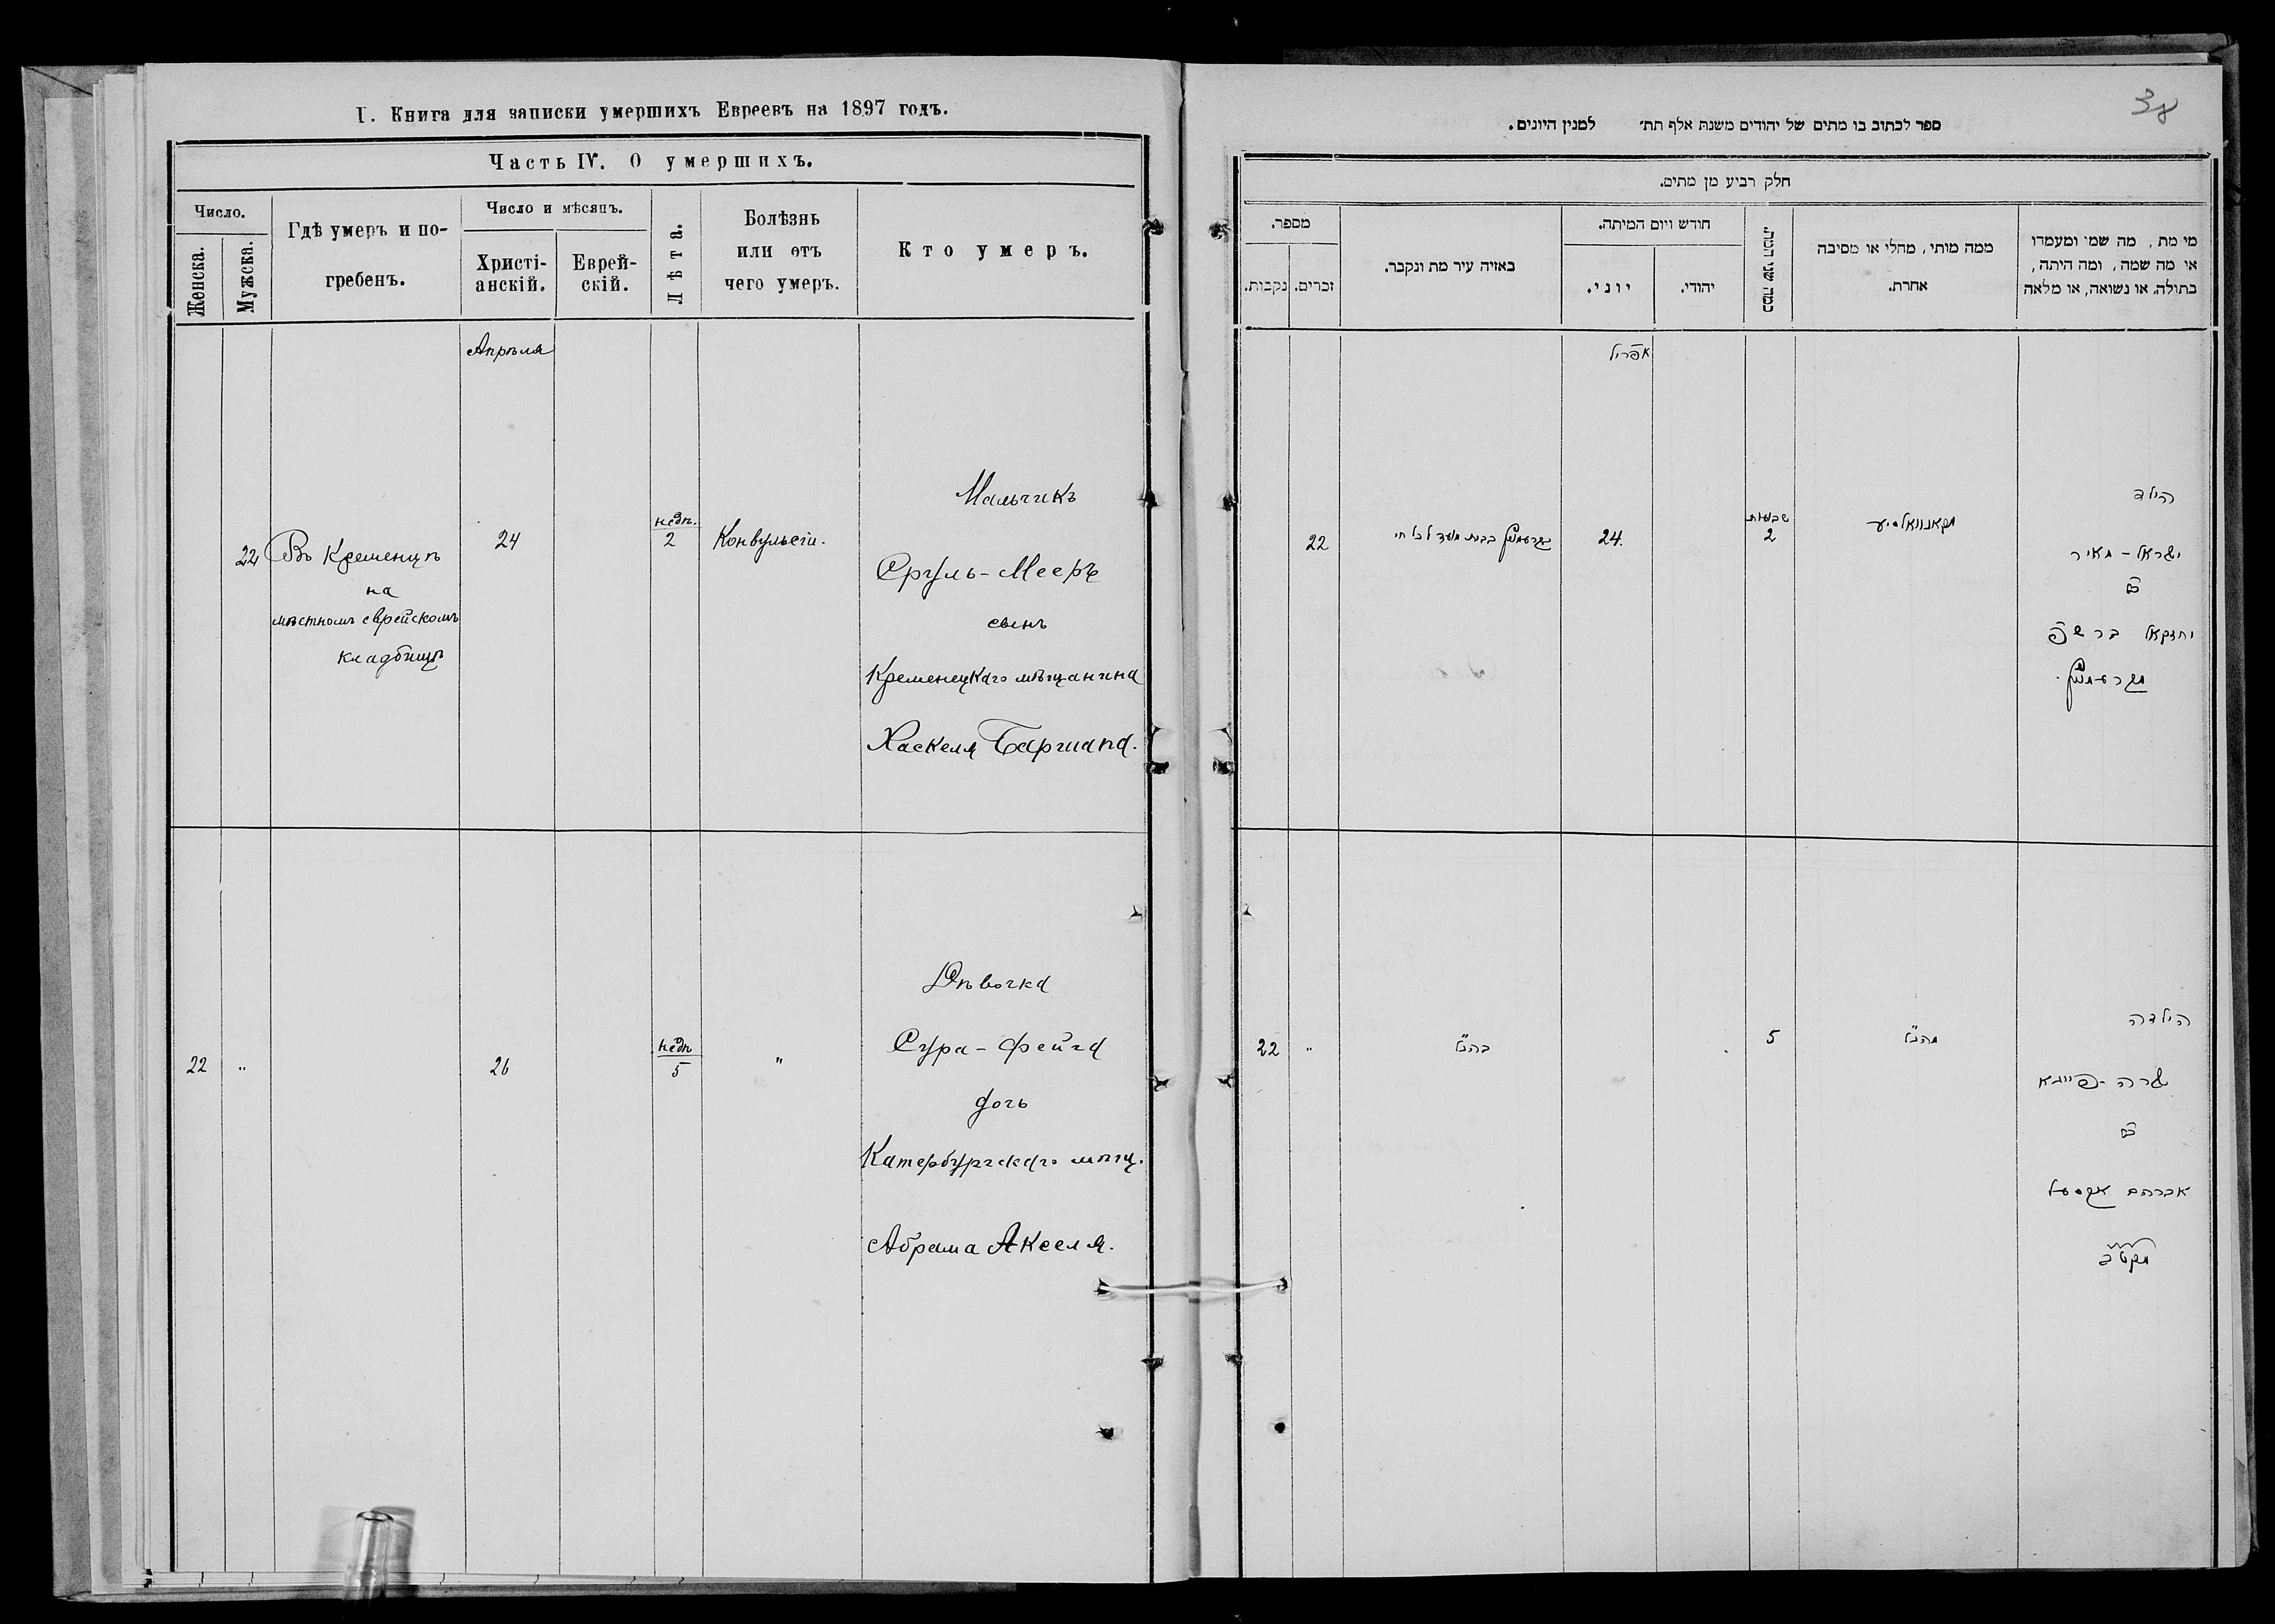 I. Книга для записки умершихъ Евреевъ на 1897 годъ.
Часть IV. О умершихъ.
Число.
Женска.
Мужска.
Гдѣ умеръ и по-
гребенъ.
Число и мѣсяцъ.
Христі-
анскій.
Еврей-
скій.
Лѣта.
Болѣзнь
или отъ
чего умеръ.
Кто умеръ.
Апрѣля
22
Въ Кременцѣ
на
мѣстномъ еврейскомъ
кладбищѣ
24
недѣ.
2
Конвульсіи.
Мальчикъ
Сруль-Мееръ
сынъ
Кременецкаго мѣщанина
Хаскеля Баршапа.
22
"
26
недѣ
5
"
Дѣвочка
Сура-Фейга
дочь
Катербургскаго мѣщ.
Абрама Акселя.
38
ספר לכתוב בו מתים של יהודים משנת אלף תת׳ למנין היונים.
חלק רביע מן מתים.
מספר.
נקבות.
זכרים.
באזיה עיר מת ונקבר.
חודש ויום המיתה.
יוני.
יהודי.
כמה שני המת.
ממה מותי, מחלי או מסיבה
אחרת.
מי מת, מה שמו ומעמדו
או מה שמה, ומה היתה,
בתולה, או נשואה, או מלאה
אפריל
22
בבית מועד לכל חי
24.
שבועות
2
הילד
ישראל-מאיר
יחזקאל ברשפ
22
"
כהנ"ל
5
מהנ"ל
הילדה
שרה-פייגא
אברהם אקסעל